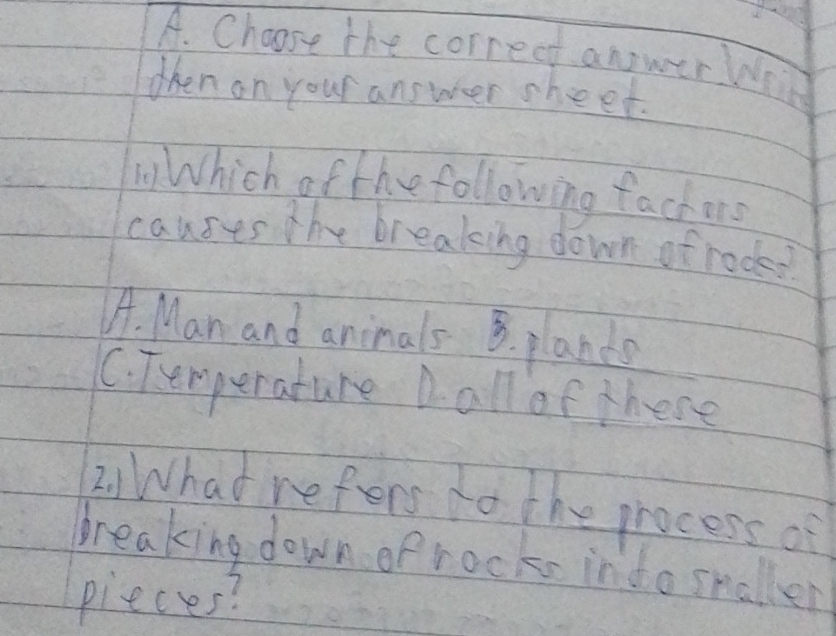 A. Choose the correct answer Write
then on your answer sheet.
1.) Which of the following factors
causes the breaking down of rocks?
A. Man and animals B. plants
C. Temperature D. all of these
2.) What refers to the process of
breaking down of rocks into smaller
pieces?